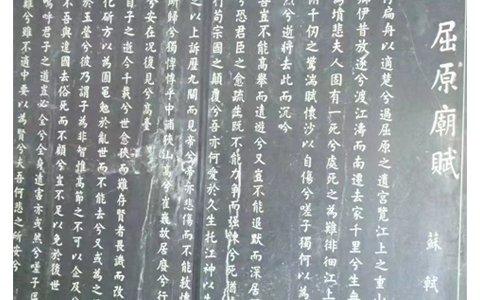 屈原廟賦
蘇軾
扁舟以適楚兮過屈原之遺宮覽江上之重山
鄉伊昔放逐兮渡江濤而南遷去家千里兮生無
為墳悲夫人固有一死兮處死之為難徘徊江上
千仞之驚湍賦懷沙以自傷兮嗟子獨何以為
烈兮逝將去此而沉吟
吾豈不能高舉而遠遊兮又豈不能退默而深居
兮恐君臣之愈疏生既不能力爭而強諫兮死猶
行苟宗國之顛覆兮吾亦何愛於久生托江神以
之以上訴歷九關而見帝兮帝亦悲傷而不能救懷
所歸兮獨惸惸乎中浦峽山高兮崔嵬故居廢兮行
兮安在況復見兮高臺
自子之逝今千載兮世愈狹而難存賢者畏譏而改
化斫方以為圓黽勉於亂世而不能去兮又或為之
於玉瑩兮彼乃謂子為非智惟高節之不可以企及兮
不吾與違國去俗死而不顧兮豈不足以免於後世
嗚呼君子之道豈必全兮全身遠害亦或然兮嗟子區
難兮雖不適中要以為賢兮夫吾何悲子所安兮